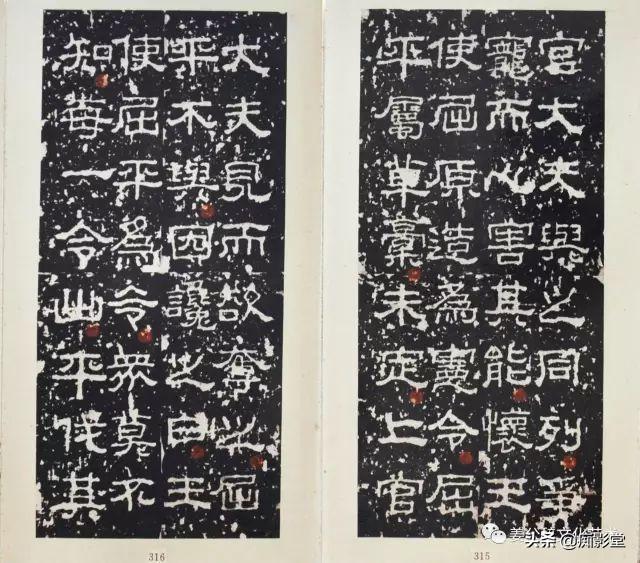 官大夫與之同列爭
寵而心害其能懷王
使屈原造為憲令屈
平屬草藁未定上官
315
大夫見而欲奪之屈
平不與因讒之曰王
使屈平為令眾莫不
知每一令出平伐其
316
头条 @痴影堂